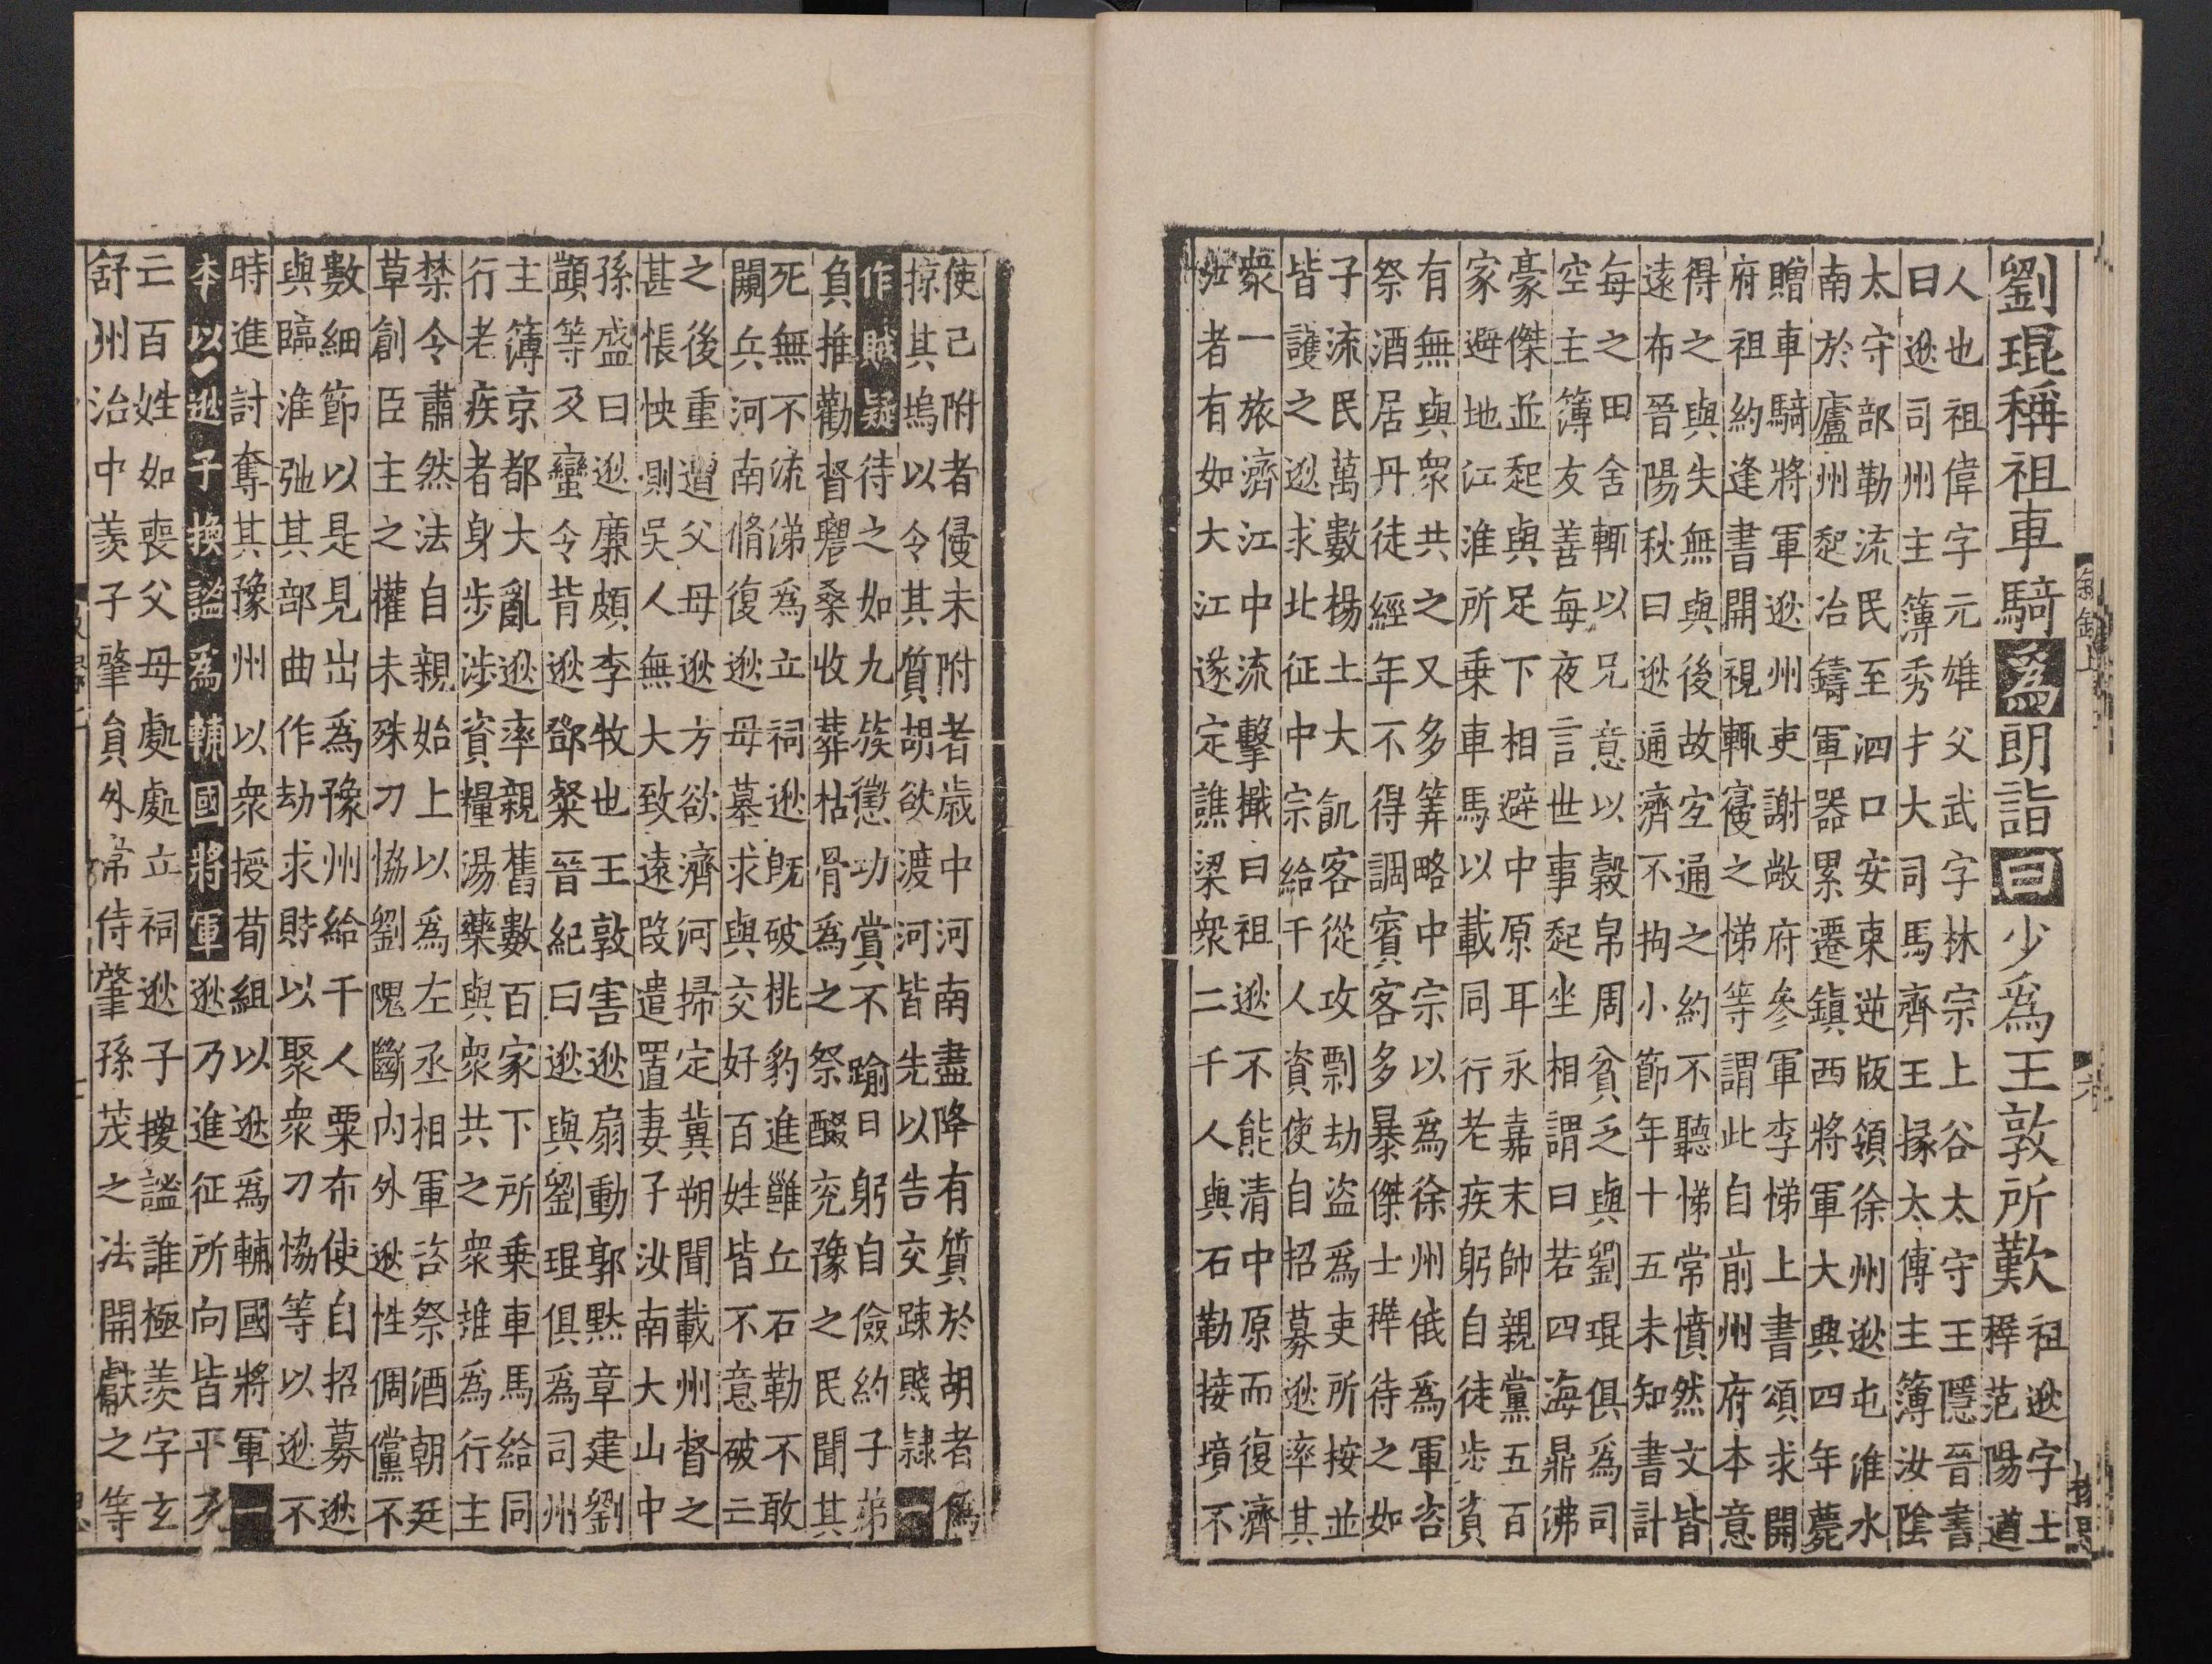 劉琨稱祖車騎為朗詣曰少為王敦所歎
祖逖字士
稺范陽遒
人也祖偉字元雄父武字林宗上谷太守王隱晉書
曰逖司州主簿秀才大司馬齊王掾太傅主簿汝陰
太守部勒流民至泗口安東逆版領徐州逖屯淮水
南於廬州起冶鑄軍器累遷鎮西將軍大興四年薨
贈車騎將軍逖州吏謝敞府參軍李悌上書頌求開
府祖約逢書開視輒寢之悌等謂此自前州府本意
得之與失無與後故安通之約不聽悌常憤然文皆
遠布晉陽秋曰逖通濟不拘小節年十五未知書計
每之田舍輒以兄意以穀帛周貧乏與劉琨俱為司
空主簿友善每夜言世事起坐相謂曰若四海鼎沸
豪傑並起與足下相避中原耳永嘉末帥親黨五百
家避地江淮所乘車馬以載同行老疾躬自徒步資
有無與眾共之又多筭略中宗以為徐州俄為軍咨
祭酒居丹徒經年不得調賓客多暴傑士稺待之如
子流民萬數楊土大飢客從攻剽劫盜為吏所按並
皆護之逖求北征中宗給千人資使自招募逖率其
衆一旅濟江中流擊檝曰祖逖不能清中原而復濟
此者有如大江遂定譙梁衆二千人與石勒接墳不
使己附者侵未附者歲中河南盡降有質於胡者偽
掠其塢以令其質胡欲渡河皆先以告交踈賤隷一
作財疑待之如九族懲功賞不踰日躬自儉約子弟
負推勸督桑收葬枯骨為之祭醊兗豫之民聞其
死無不流涕為立祠逖既破桃豹進雝丘石勒不敢
闚兵河南脩復逖母墓求與交好百姓皆不意破二
之後重遭父母逖方欲濟河掃定冀朔聞載州督之
甚悵怏則吳人無大致遠段遣置妻子汝南大山中
孫盛曰逖廉頗李牧也王敦害逖扇動郭默章建劉
顗等及蠻令背逖鄧粲晉紀曰逖與劉琨俱為司州
主簿京都大亂逖率親舊數百家下所乘車馬給同
行老疾者身步涉資糧湯藥與衆共之衆推為行主
禁令肅然法自親始上以為左丞相軍咨祭酒朝廷
草創臣主之權未殊刀協劉隗斷內外逖性倜儻不
數細節以是見出為豫州給千人粟布使自招募逖
與臨淮弛其部曲作劫求財以聚衆刀協等以逖不
時進討奪其豫州以衆授荀組以逖為輔國將軍一
本以逖子換謚為輔國將軍逖乃進征所向皆平死
二百姓如喪父母處處立祠逖子謚誰極羨字玄
舒州治中羨子肇員外常侍肇孫茂之法開獻之等